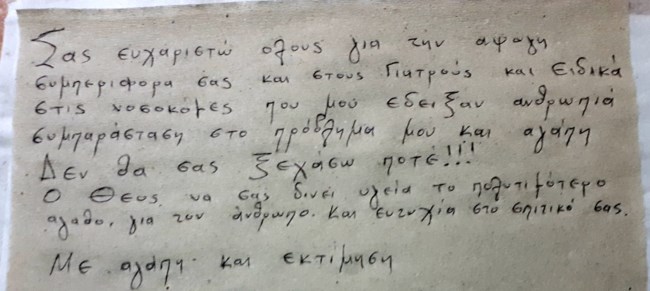 Σας ευχαριστώ ολους για την αψογη
συμπεριφορα σας και στους Γιατρούς και Ειδικά
στις νοσοκόμες που μου εδειξαν ανθρωπιά
συμπαράσταση στο πρόβλημα μου και αγάπη
Δεν θα σας ξεχάσω ποτέ!!!
Ο Θεος να σας δινει υγεια το πολυτιμότερο
αγαθο, για τον άνθρωπο. Και ευτυχία στο σπιτικό σας.
Με αγάπη και εκτίμηση